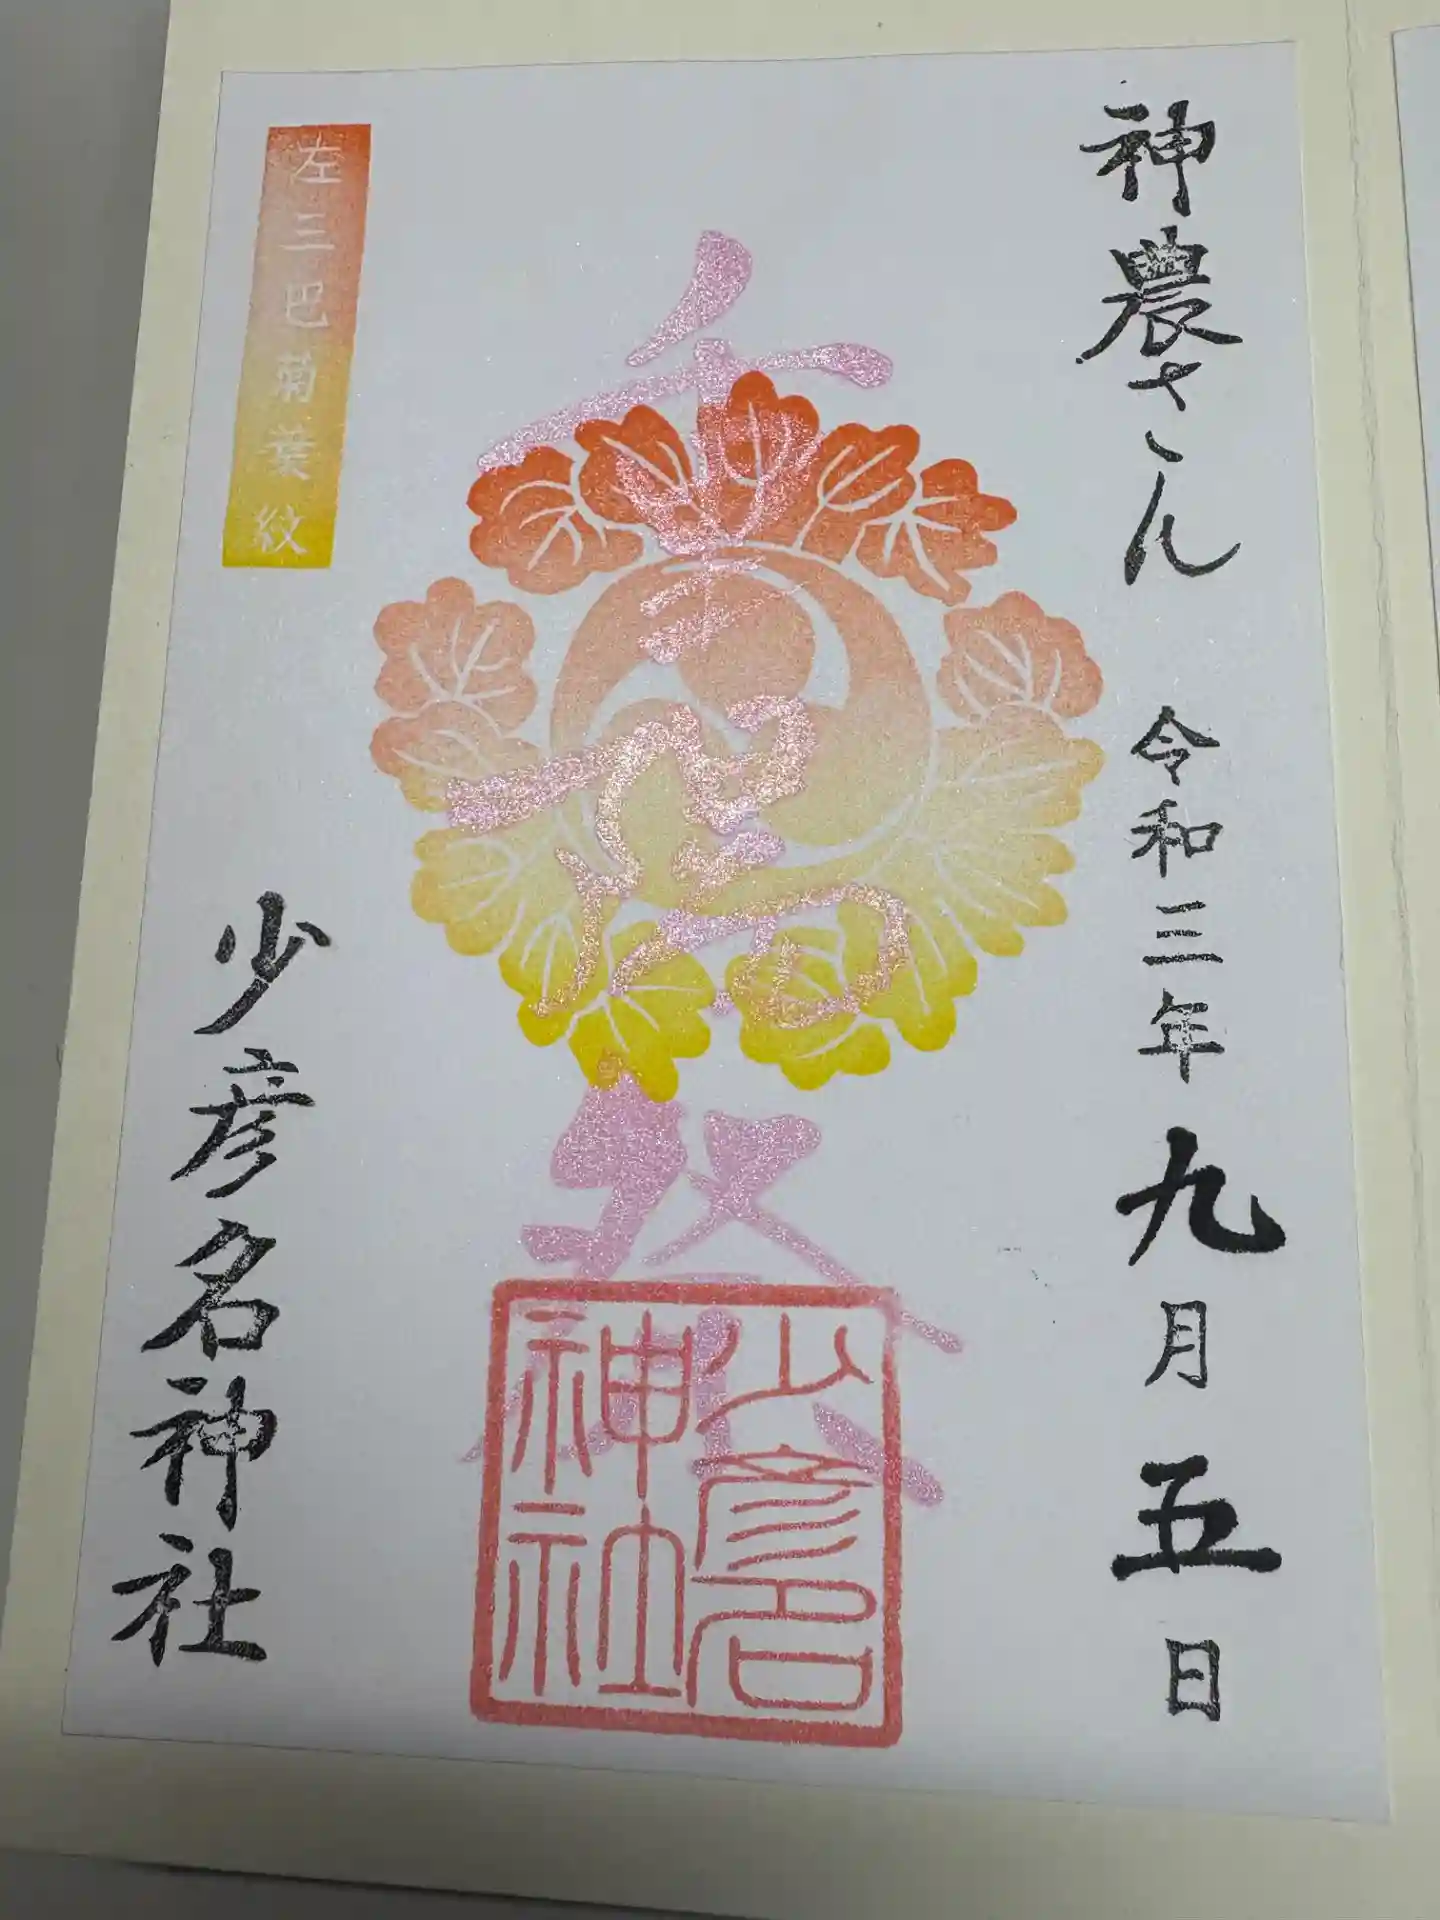 神農さん 令和三年九月五日
重陽祭
少彦名
神社
左三巴菊葉紋
少彦名神社